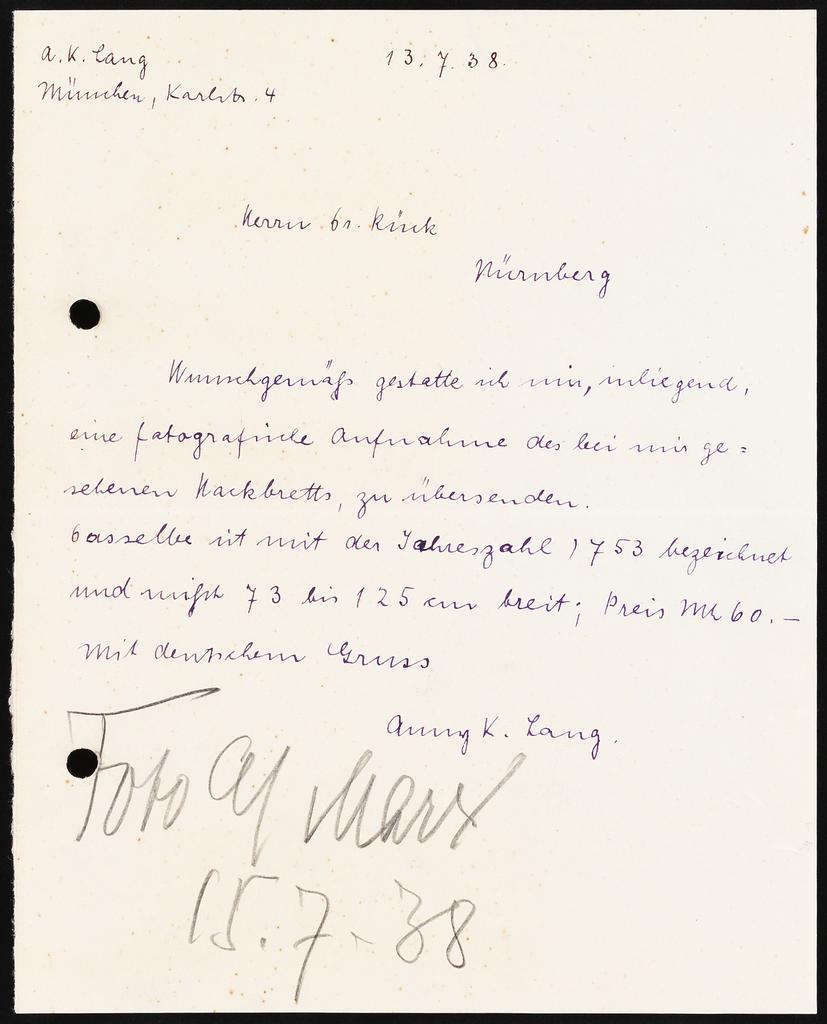 A. K. Lang 13. 7. 38.
München, Karlstr. 4
Herrn Dr. Rück
Nürnberg
Wunschgemäß gestatte ich mir, inliegend,
eine fotografische Aufnahme des bei mir ge=
sehenen Hackbretts, zu übersenden.
Dasselbe ist mit der Jahreszahl 1753 bezeichnet
und mißt 73 bis 125 cm breit; Preis Mk 60.—
Mit deutschem Gruss
Anny K. Lang.
Foto
Marx
15.7.38